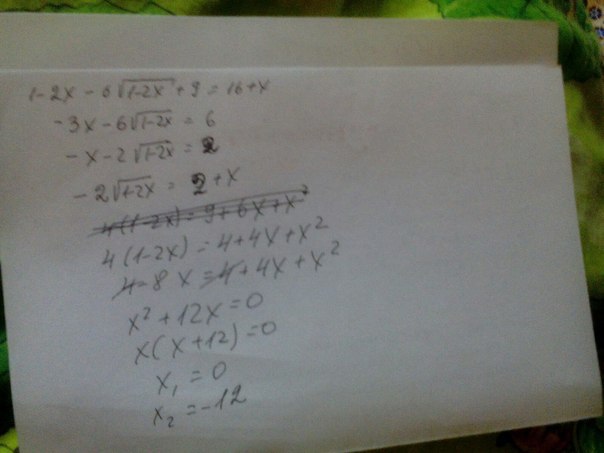 1-2x - 6√(1-2x) + 9 = 16+x
-3x - 6√(1-2x) = 6
-x - 2√(1-2x) = 2
-2√(1-2x) = 2 + x
4(1-2x) = 9 + 6x + x²
4(1-2x) = 4 + 4x + x²
4 - 8x = 4 + 4x + x²
x² + 12x = 0
x(x+12) = 0
x₁ = 0
x₂ = -12